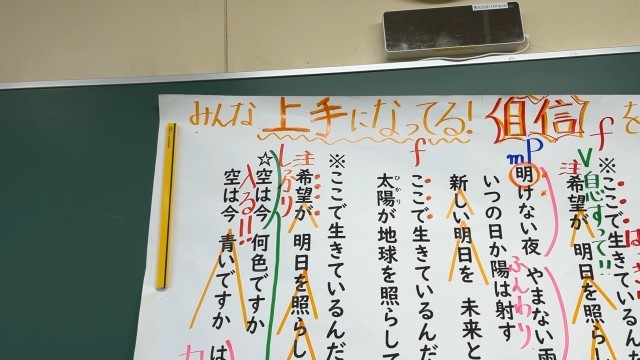 みんな上手になってる！自信を
f
※ここで生きているん
はっき
V息すって!!
注
希望が 明日を照ら
mP
明けない夜 やまない雨
ふんわり
いつの日か陽は射す
新しい明日を 未来と
f
ここで生きているんだ
太陽が地球を照らして
ひかり
※ここで生きているんだ
注
希望が 明日を照らし
しっかり
☆空は今 何色ですか
入る!!
空は今 青いですか は